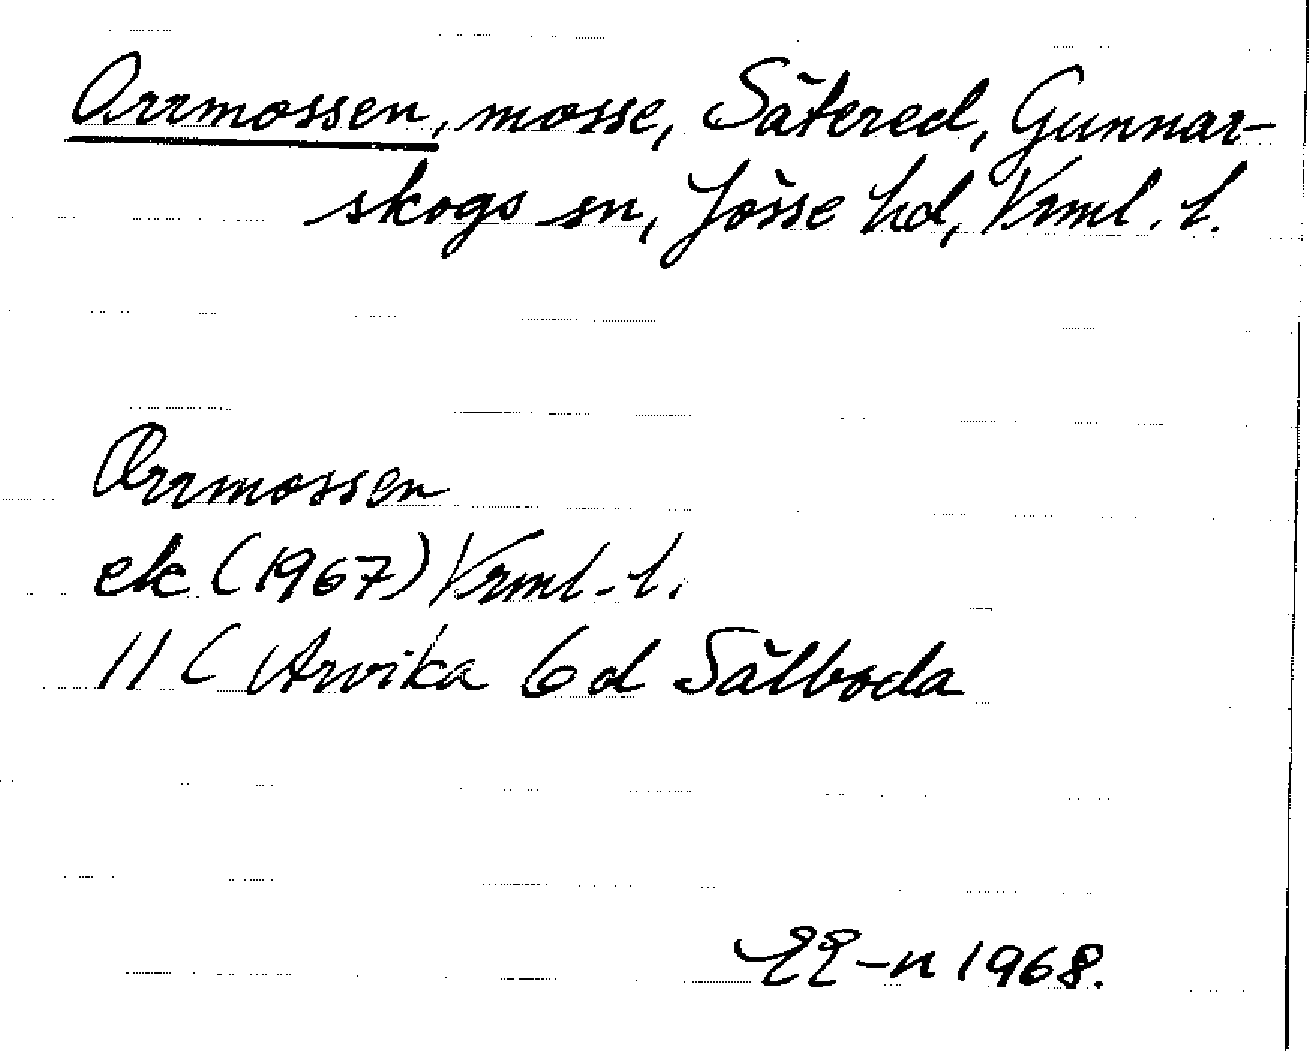 Orrmossen, mosse, Sätered, Gunnar-
skogs sn, Jösse hd, Vrml. l.
Orrmossen
ek (1967) Vrml. l.
11 C Arvika 6d Sälboda
EE-n 1968.